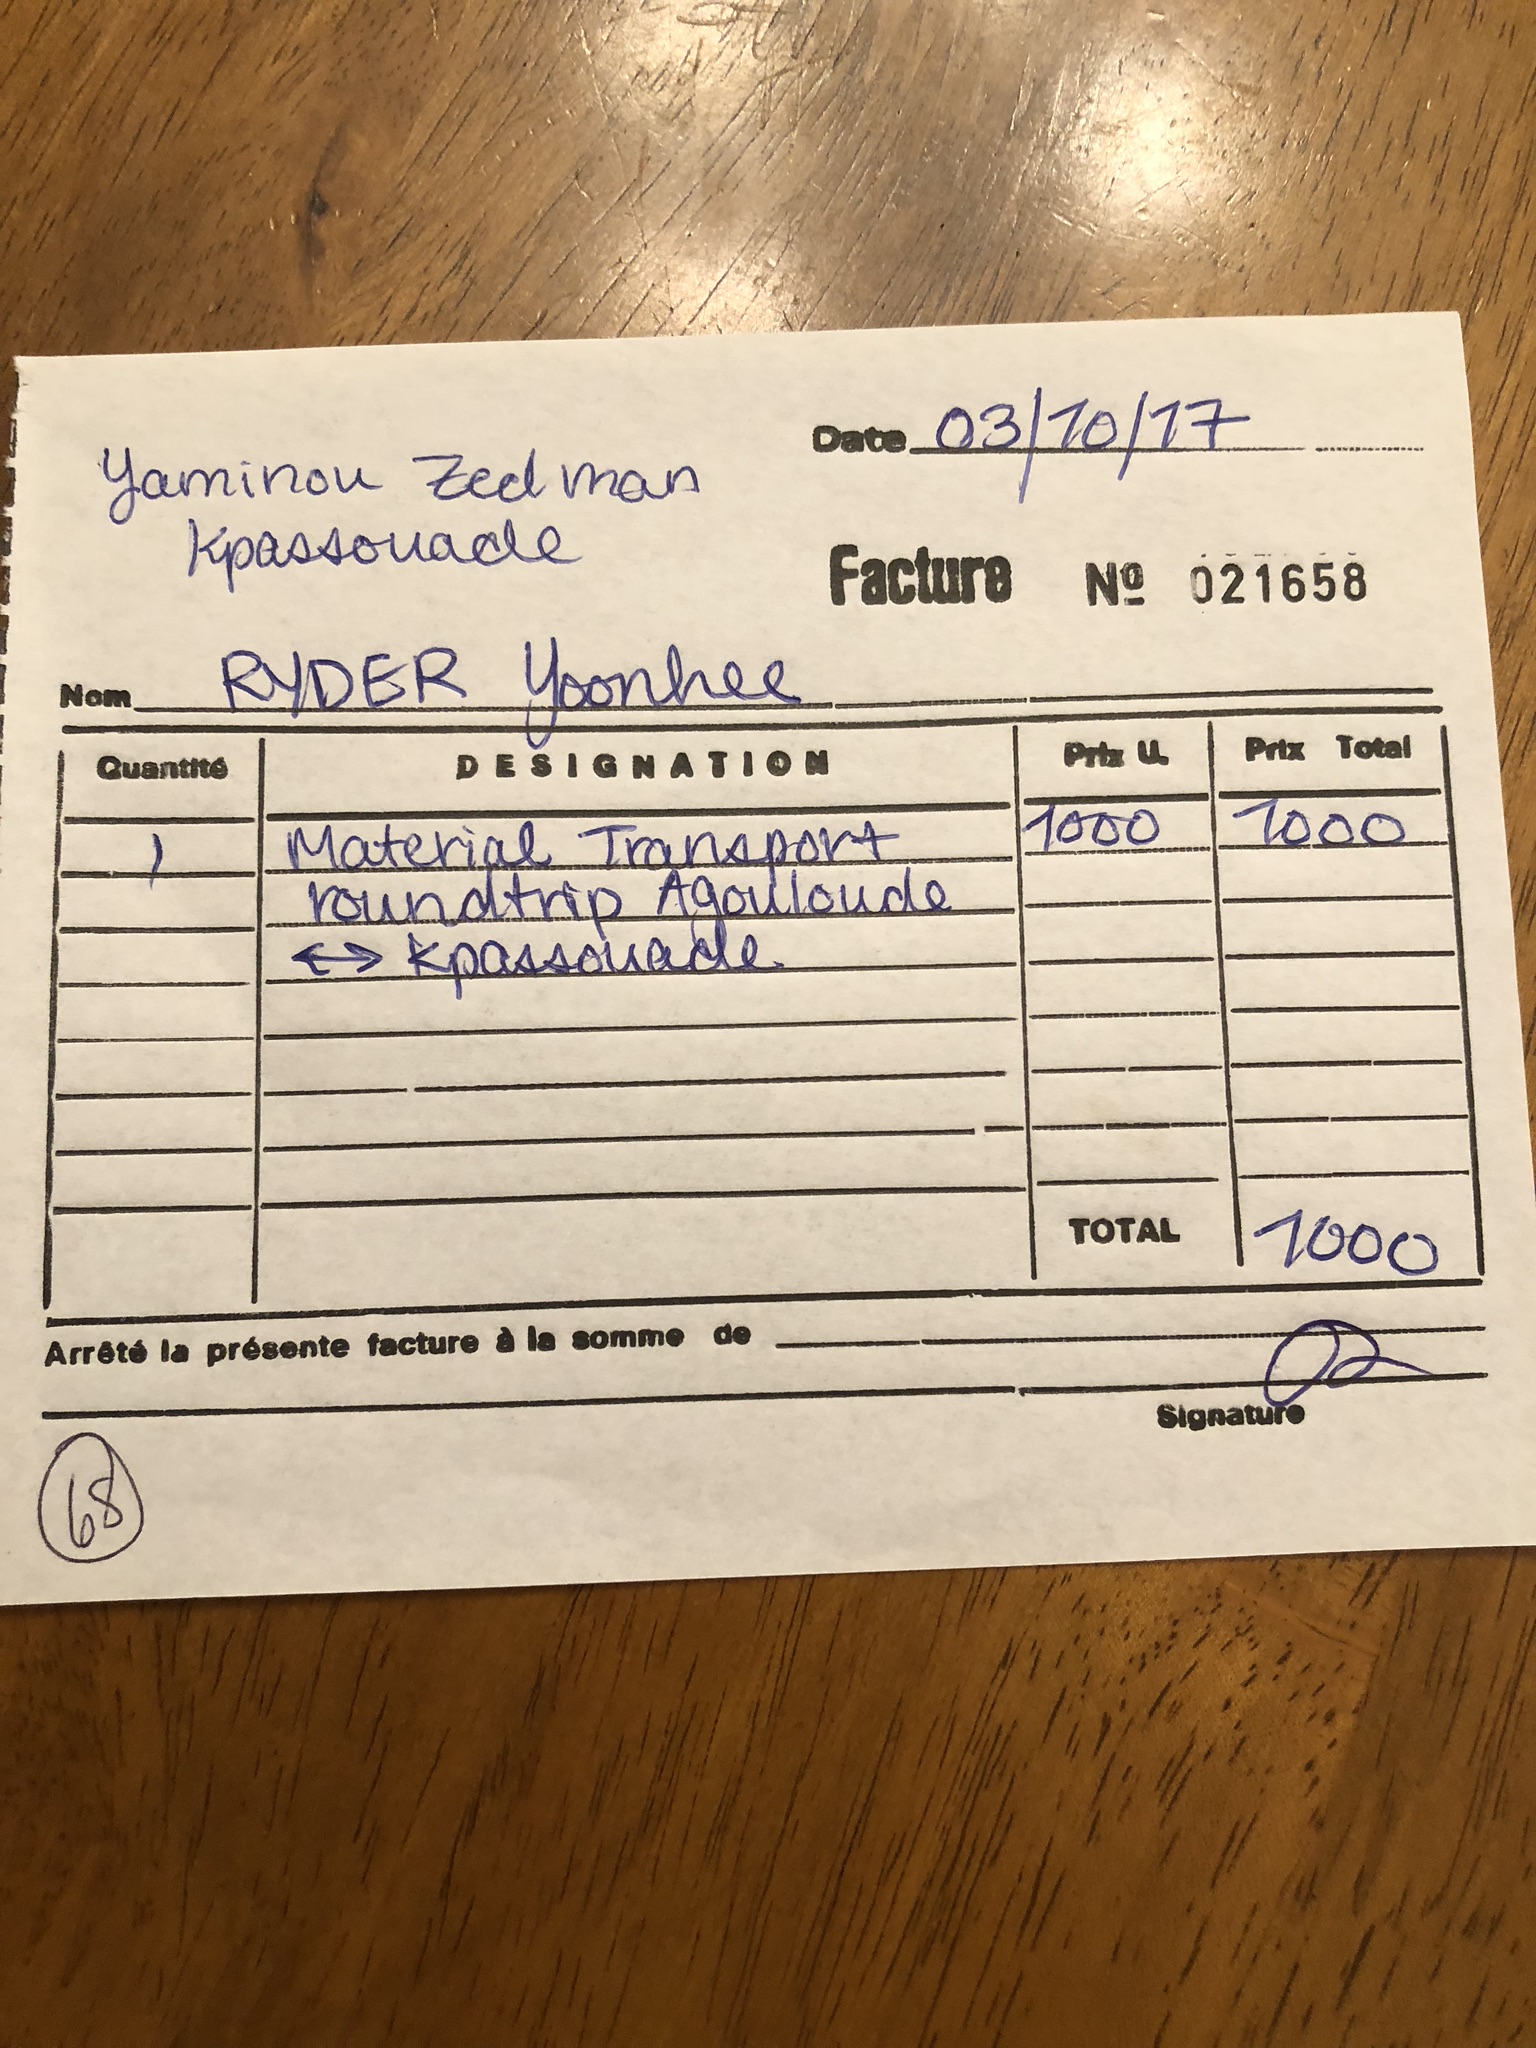 Date 03/10/17
Yaminou Zedman
Kpassouade
Facture Nº 021658
Nom RYDER Yoonhee
Quantité DESIGNATION Prix U. Prix Total
1 Material Transport 1000 1000
roundtrip Agouloude
↔ Kpassouade
TOTAL 1000
Arrêté la présente facture à la somme de
Signature
68